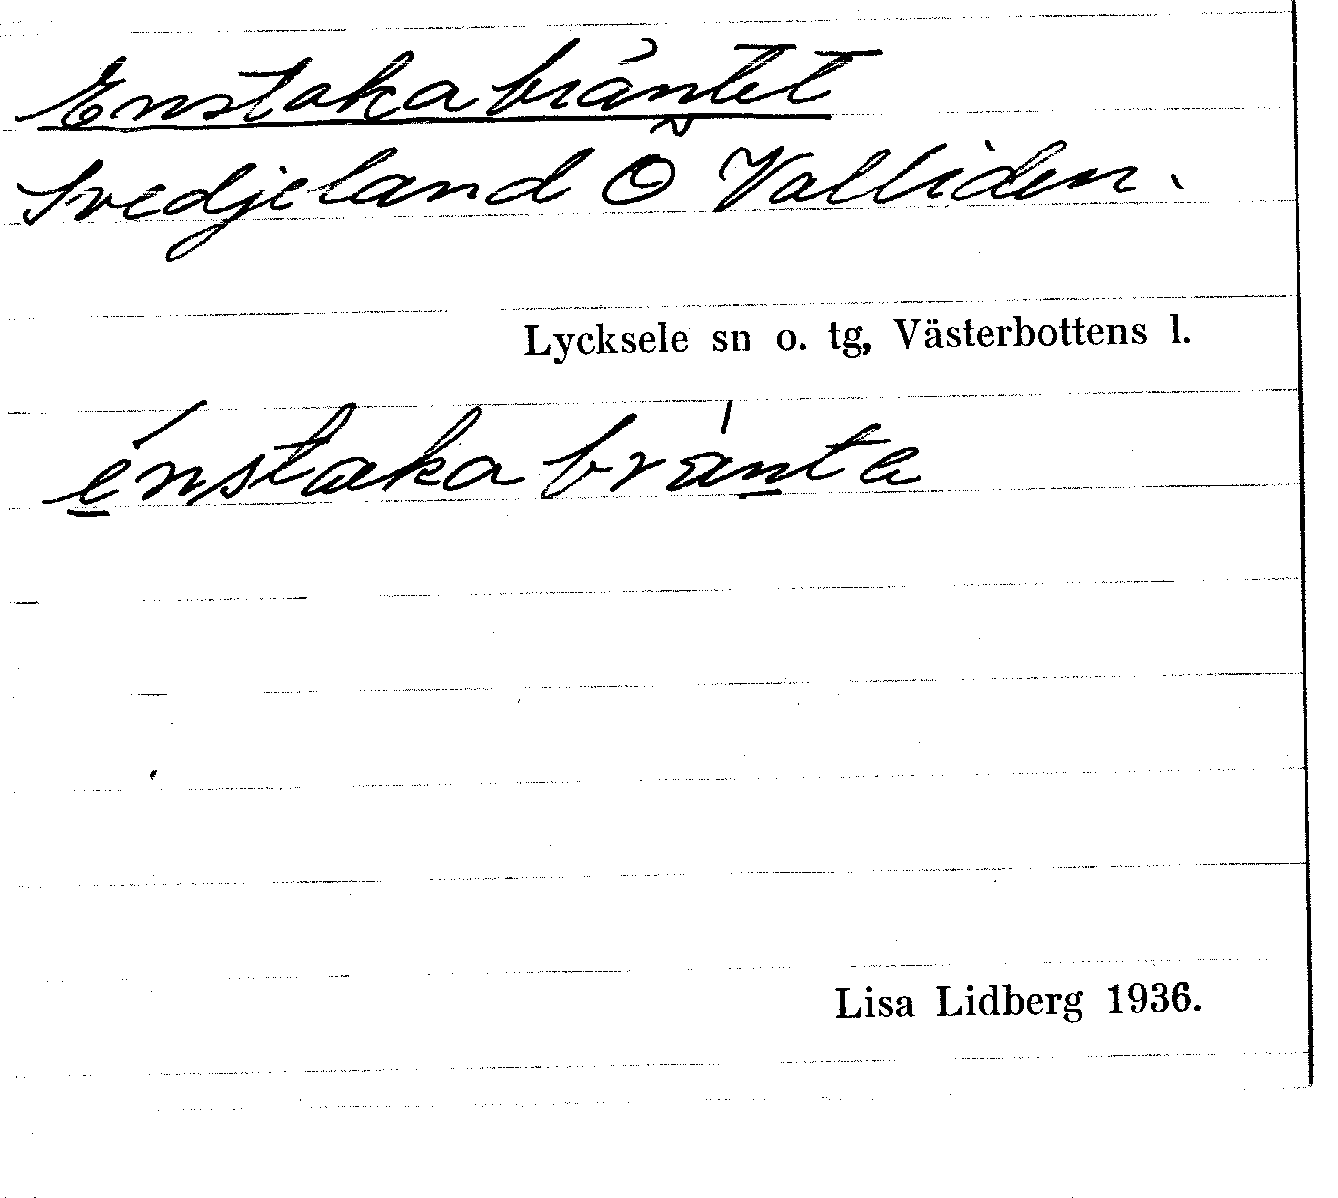 Enstakabräntet
Svedjeland Ö Valliden.
Lycksele sn o. tg, Västerbottens l.
énstakabránte
Lisa Lidberg 1936.